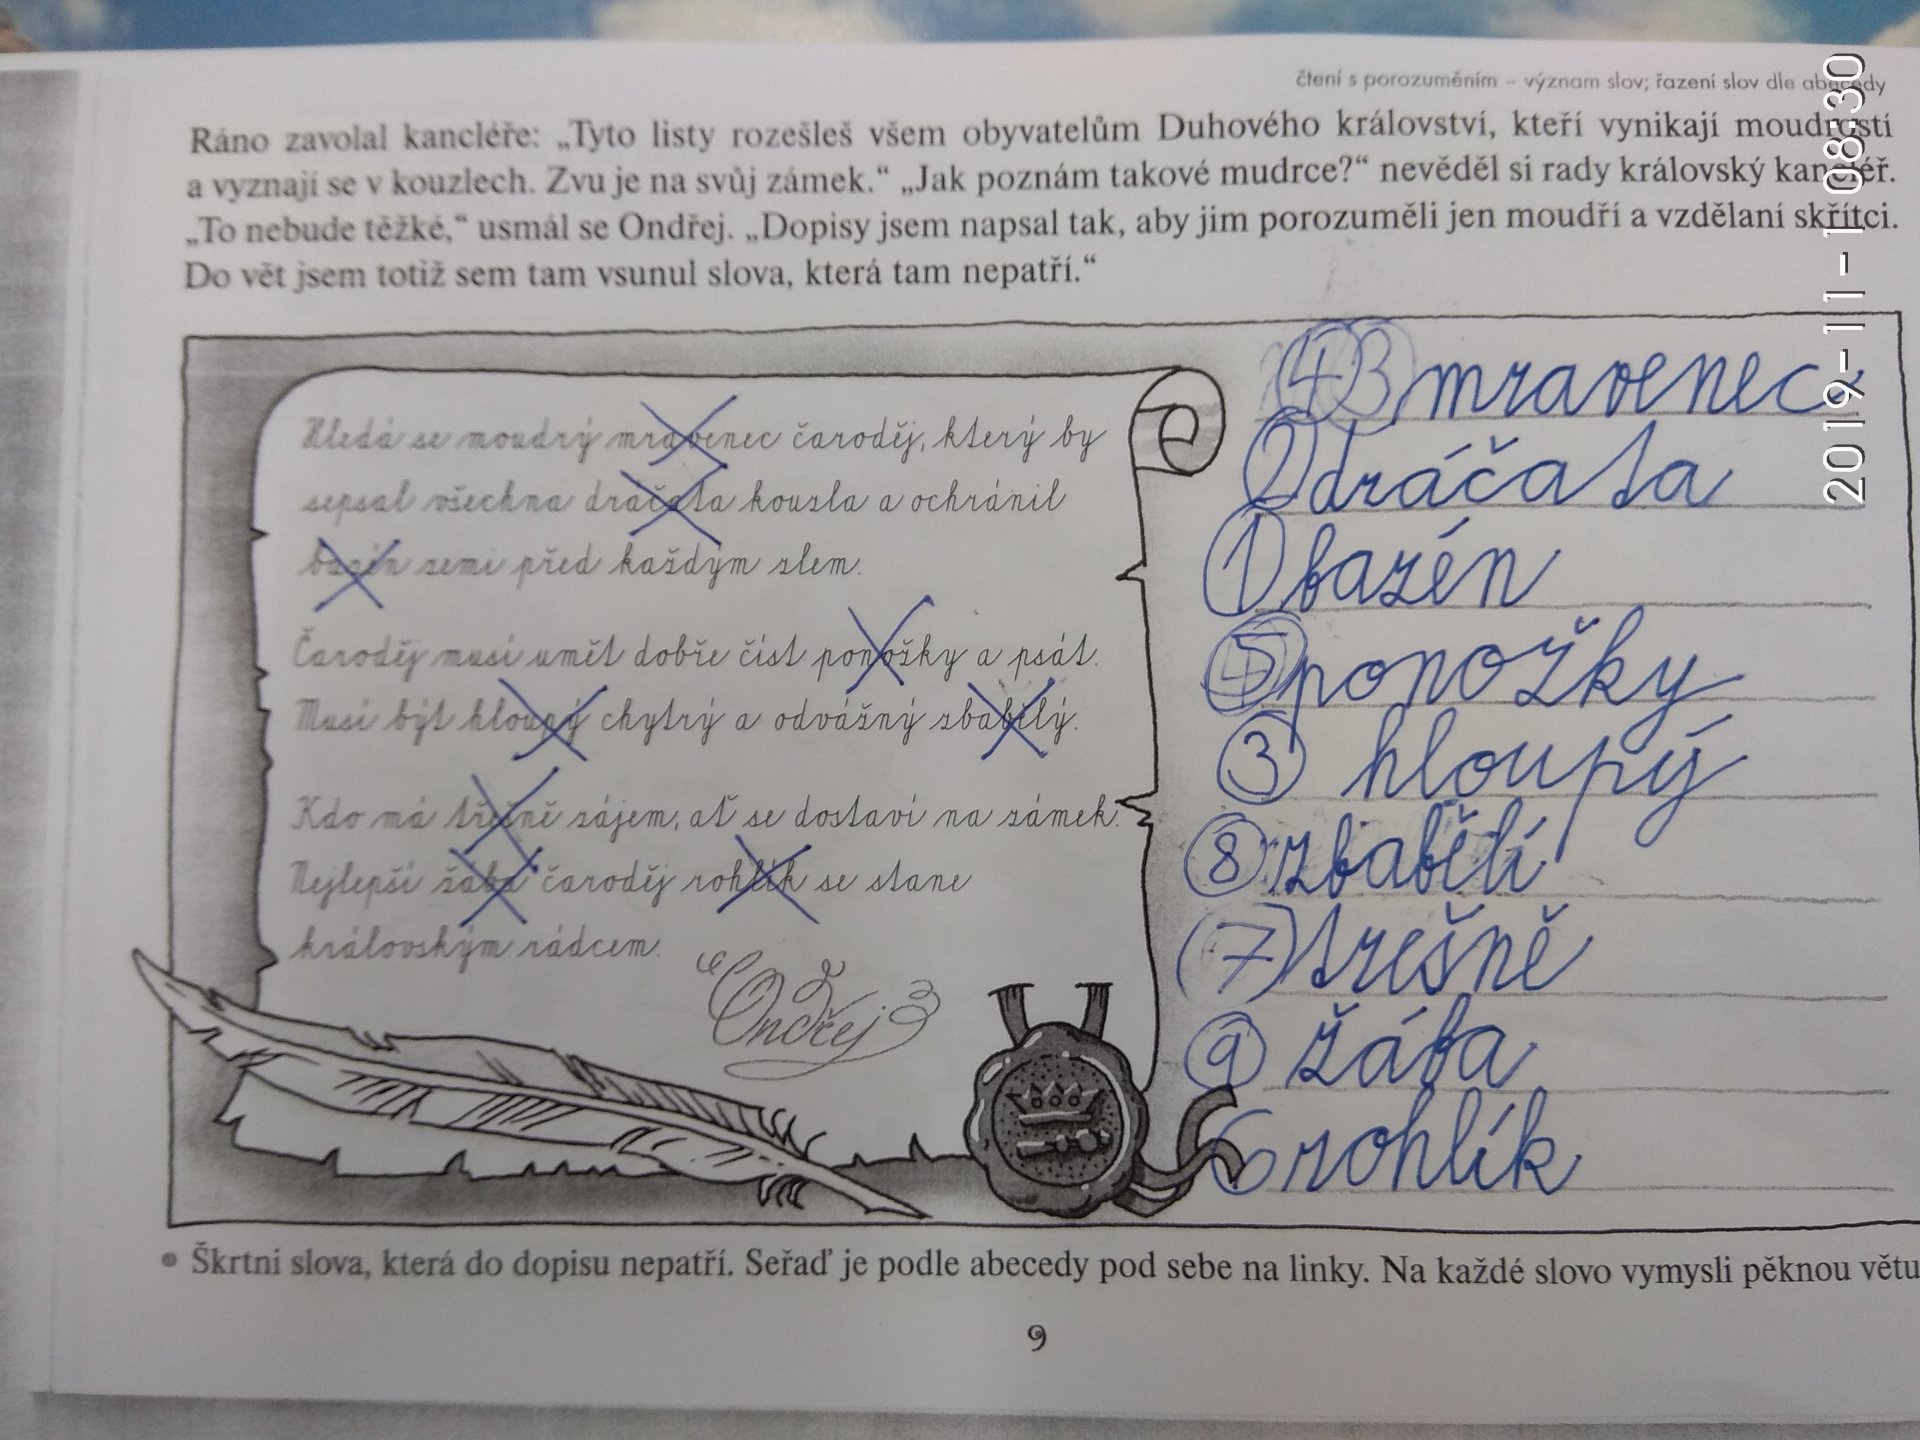 čtení s porozuměním – význam slov; řazení slov dle abecedy
Ráno zavolal kancléře: „Tyto listy rozešleš všem obyvatelům Duhového království, kteří vynikají moudrostí
a vyznají se v kouzlech. Zvu je na svůj zámek.“ „Jak poznám takové mudrce?“ nevěděl si rady královský kancléř.
„To nebude těžké,“ usmál se Ondřej. „Dopisy jsem napsal tak, aby jim porozuměli jen moudří a vzdělaní skřítci.
Do vět jsem totiž sem tam vsunul slova, která tam nepatří.“
Hledá se moudrý mravenec čaroděj, který by
sepsal všechna dráčata kouzla a ochránil
bazén zemi před každým zlem.
Čaroděj musí umět dobře číst ponožky a psát.
Musí být hloupý chytrý a odvážný zbabělý.
Kdo má třešně zájem, ať se dostaví na zámek.
Nejlepší žába čaroděj rohlík se stane
královským rádcem.
Ondřej
4 3 mravenec
2 dráčata
1 bazén
5 ponožky
3 hloupý
8 zbabělí
(7) trešně
9 žába
6 rohlík
• Škrtni slova, která do dopisu nepatří. Seřaď je podle abecedy pod sebe na linky. Na každé slovo vymysli pěknou větu
9
2019-11-1 08:30